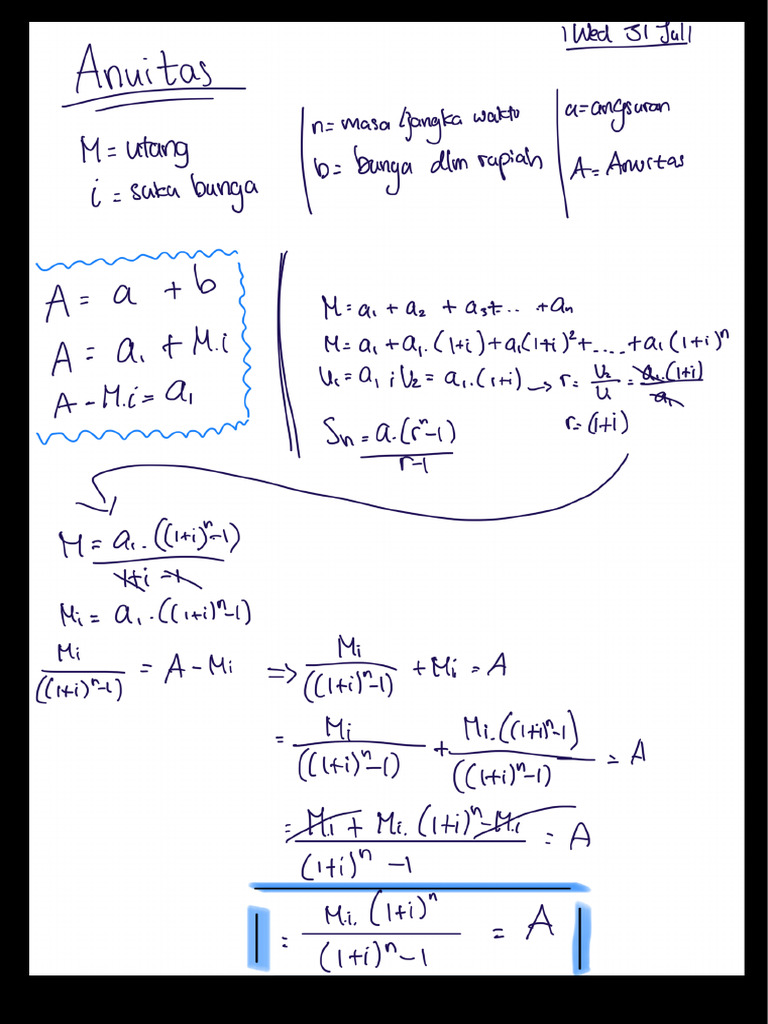 |Wed 31 Jul|
Anuitas
M = utang
i = suku bunga
n = masa /jangka waktu
b = bunga dlm rapiah
a = angsuran
A = Anuitas
A = a + b
A = a₁ + M.i
A - M.i = a₁
M = a₁ + a₂ + a₃+ ... + aₙ
M = a₁ + a₁.(1+i) + a₁(1+i)² + .... + a₁(1+i)ⁿ
U₁ = a₁ ; U₂ = a₁.(1+i) → r = U₂/U = a₁.(1+i)/a₁
r = (1+i)
Sₙ = a.(rⁿ-1)/r-1
M = a₁.((1+i)ⁿ-1)/1+i-1
Mi = a₁.((1+i)ⁿ-1)
Mi/((1+i)ⁿ-1) = A - Mi ⇒ Mi/((1+i)ⁿ-1) + Mi = A
= Mi/((1+i)ⁿ-1) + Mi.((1+i)ⁿ-1)/((1+i)ⁿ-1) = A
= M.i + Mi.(1+i)ⁿ - M.i/(1+i)ⁿ - 1 = A
= M.i.(1+i)ⁿ/(1+i)ⁿ-1 = A